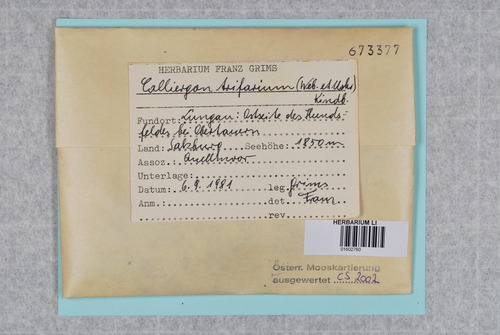 673377
HERBARIUM FRANZ GRIMS
Calliergon trifarium (Web. et Mohr)
Kindb.
Fundort: Lungau: Ostseite des Hunds-
feldes bei Obertauern
Land: Salzburg Seehöhe: 1850 m
Assoz.: Quellmoor
Unterlage:
Datum: 6.9.1981 leg. Grims
Anm.: det. Franz
rev.
HERBARIUM LI
01602760
Österr. Mooskartierung
ausgewertet CS 2002